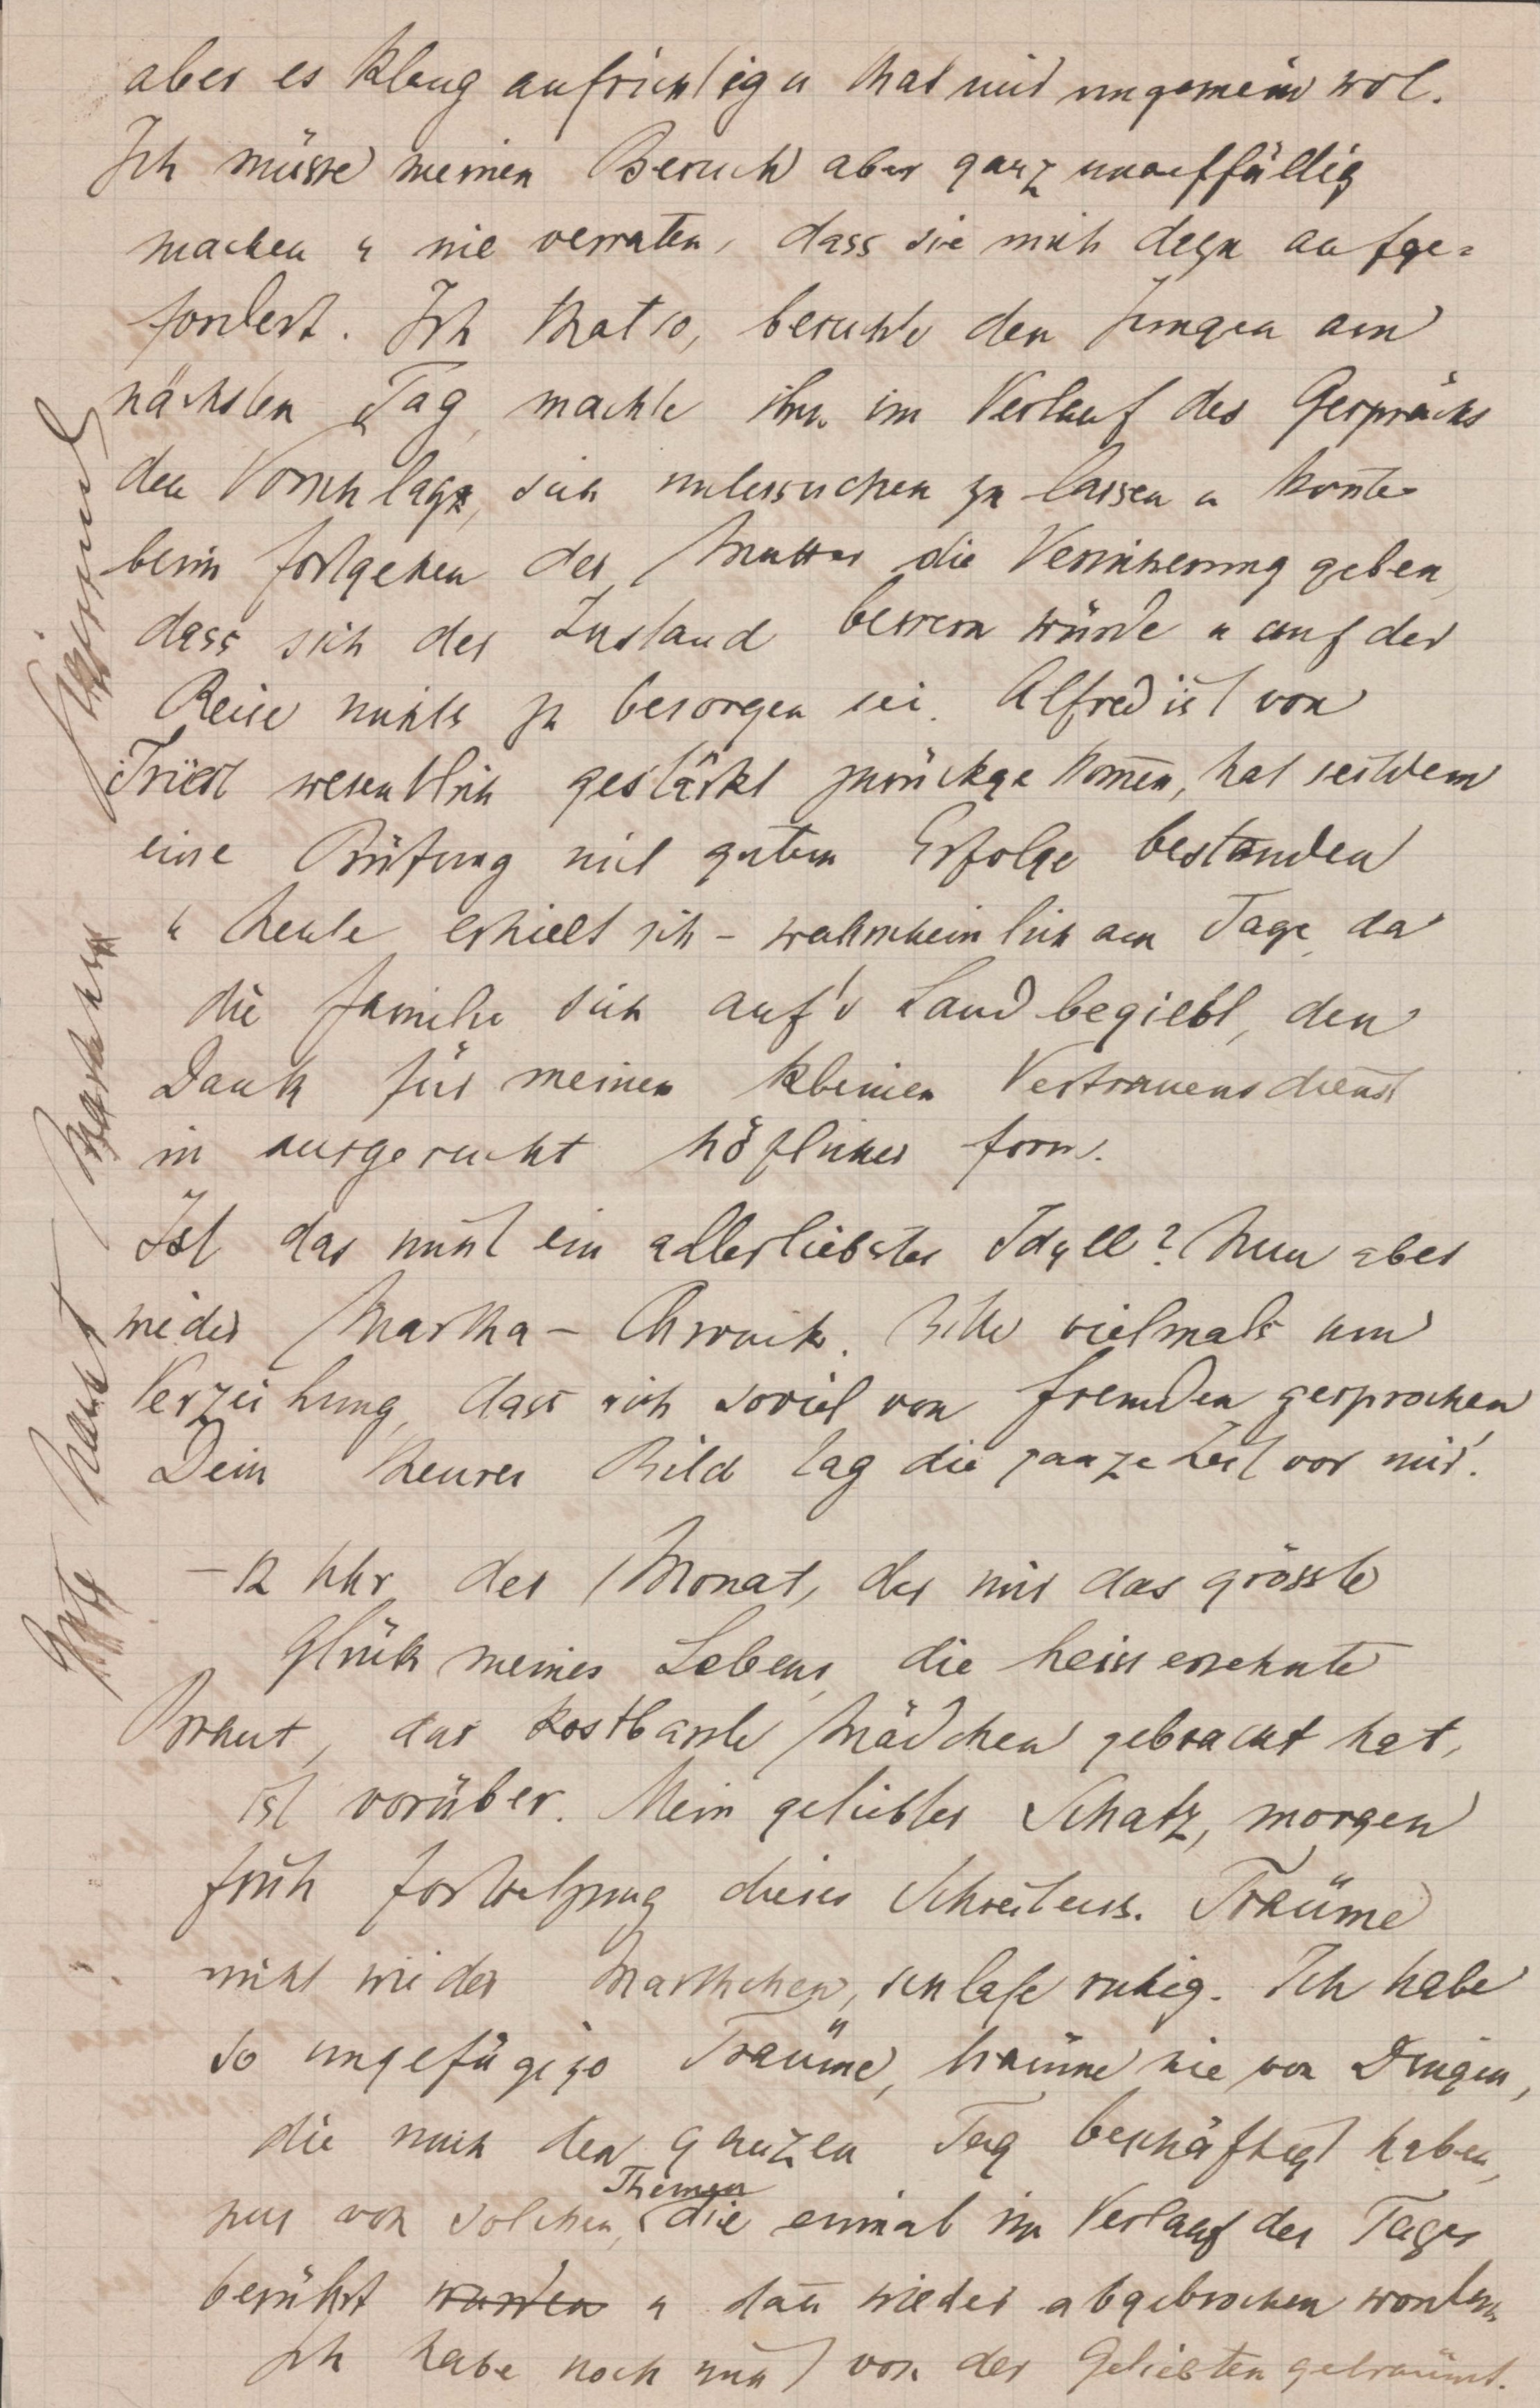 aber es klang aufrichtig u that mir ungemein wol.
Ich müsse meinen Besuch aber ganz unauffällig
machen u nie verraten, dass sie mich dazu aufge=
fordert. Ich that so, besuchte den Jungen am
nächsten Tag, machte ihm im Verlauf des Gesprächs
den Vorschlag, sich untersuchen zu lassen u konnte
beim Fortgehen der Mutter die Versicherung geben,
dass sich der Zustand bessern würde u auf der
Reise nichts zu besorgen sei. Alfred ist von
Triest wesentlich gestärkt zurückgekom̄en, hat seitdem
eine Prüfung mit gutem Erfolge bestanden
u heute erhielt ich – wahrscheinlich am Tage, da
die Familie sich auf's Land begiebt, den
Dank für meinen kleinen Vertrauensdienst
in ausgesucht höflicher Form.
Ist das nicht ein allerliebstes Idyll? Nun aber
wieder Martha – Chronik. Bitte vielmals um
Verzeihung, dass ich soviel von Fremden gesprochen,
Dein theures Bild lag die ganze Zeit vor mir.
– 12 Uhr der Monat, der mir das grösste
Glück meines Lebens, die heiss ersehnte
Braut, das kostbarste Mädchen gebracht hat,
ist vorüber. Mein geliebter Schatz, morgen
früh Fortsetzung dieses Schreibens. Träume
nicht wieder Marthchen, schlafe ruhig. Ich habe
so ungefügige Träume, träume nie von Dingen,
die mich den ganzen Tag beschäftigt haben,
nur von solchen Themen, die einmal im Verlauf des Tages
berührt wurden u dan̄ wieder abgebrochen worden.
Ich habe noch nicht von der Geliebten geträumt.
Gute Nacht Marthchen
Sigismund